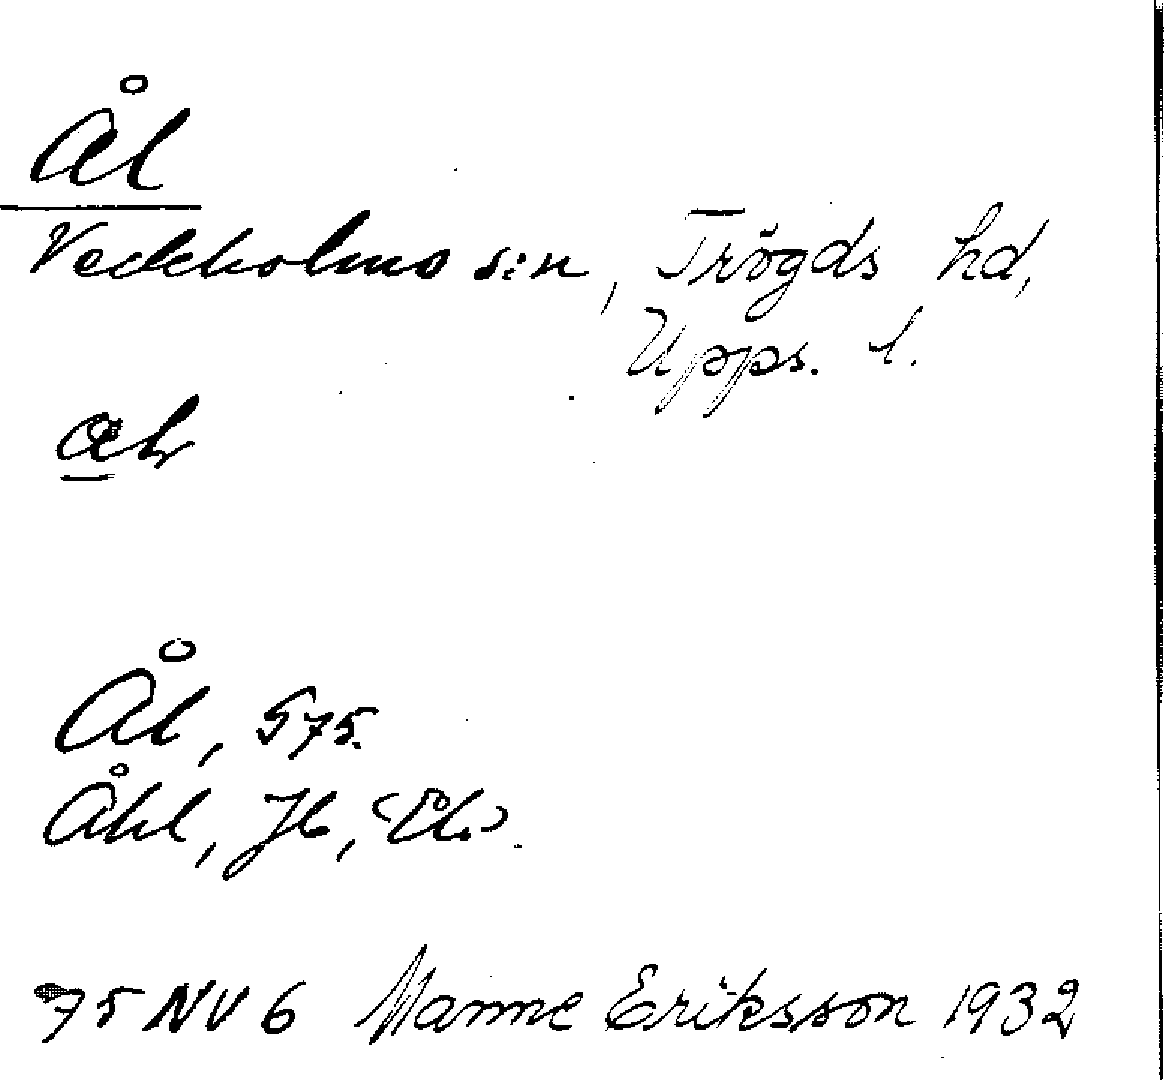 Ål
Veckholms s:n, Trögds hd,
Upps. l.
Ål, G75.
Åhl, Jb,
75 NV 6 Manne Eriksson 1932